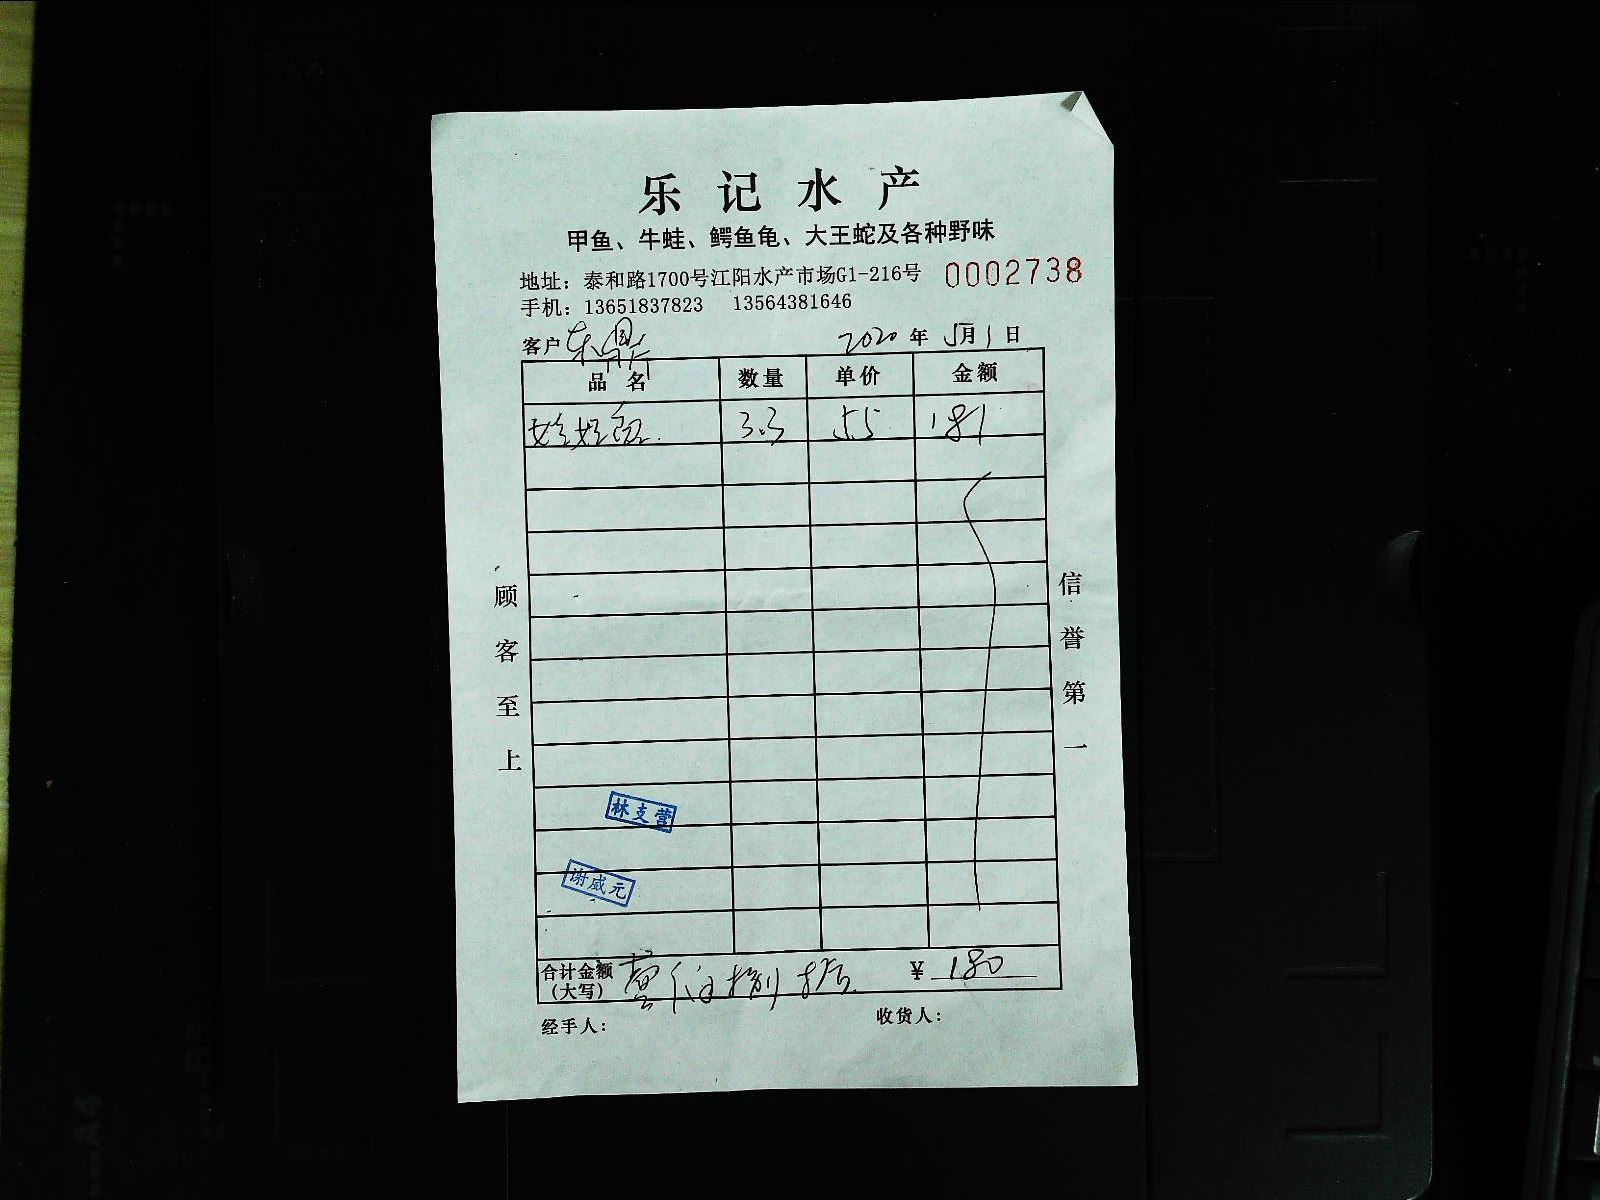 乐记水产
甲鱼、牛蛙、鳄鱼龟、大王蛇及各种野味
地址：泰和路1700号江阳水产市场G1-216号 0002738
手机：13651837823 13564381646
客户 2020年5月1日
品名 数量 单价 金额
3.3 55 181
顾客至上
信誉第一
林支营
谢威元
合计金额（大写） 壹佰捌拾 ¥180
经手人： 收货人：